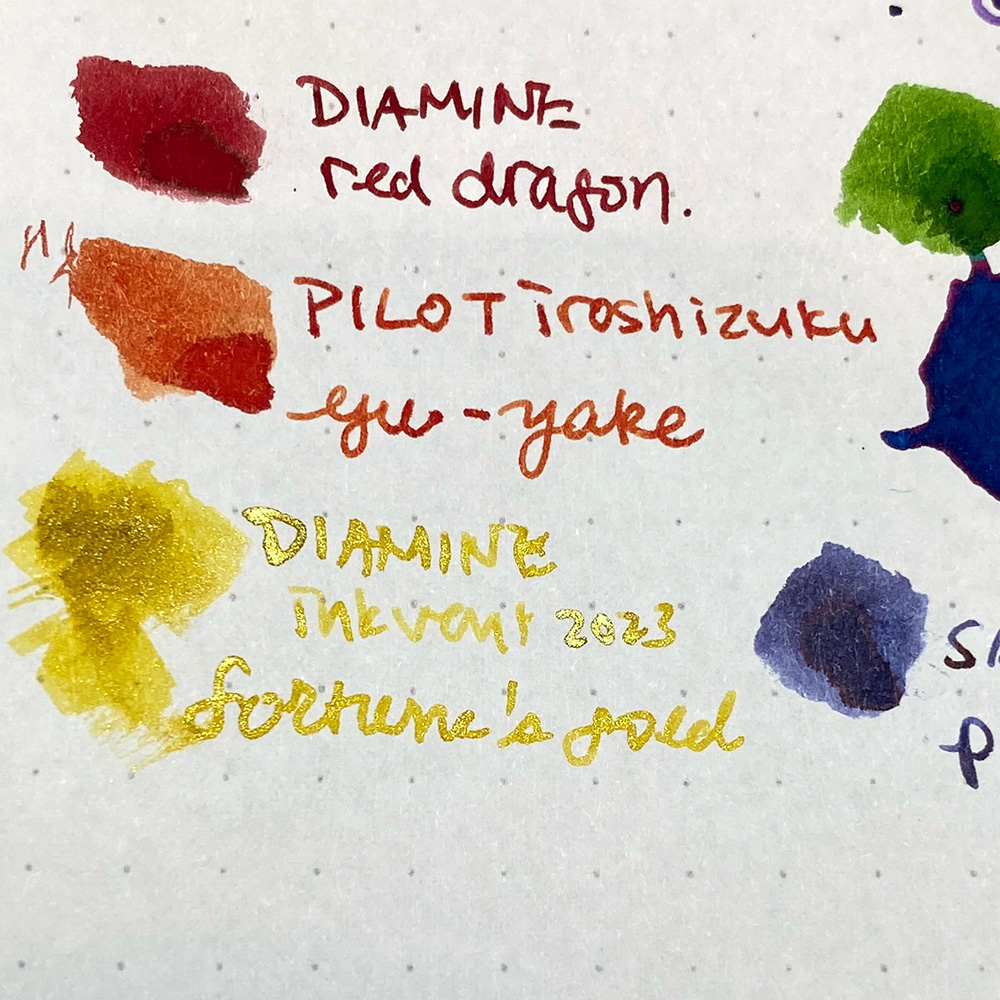 DIAMINE
red dragon.
PILOT iroshizuku
yu-yake
DIAMINE
inkvent 2023
fortune's gold